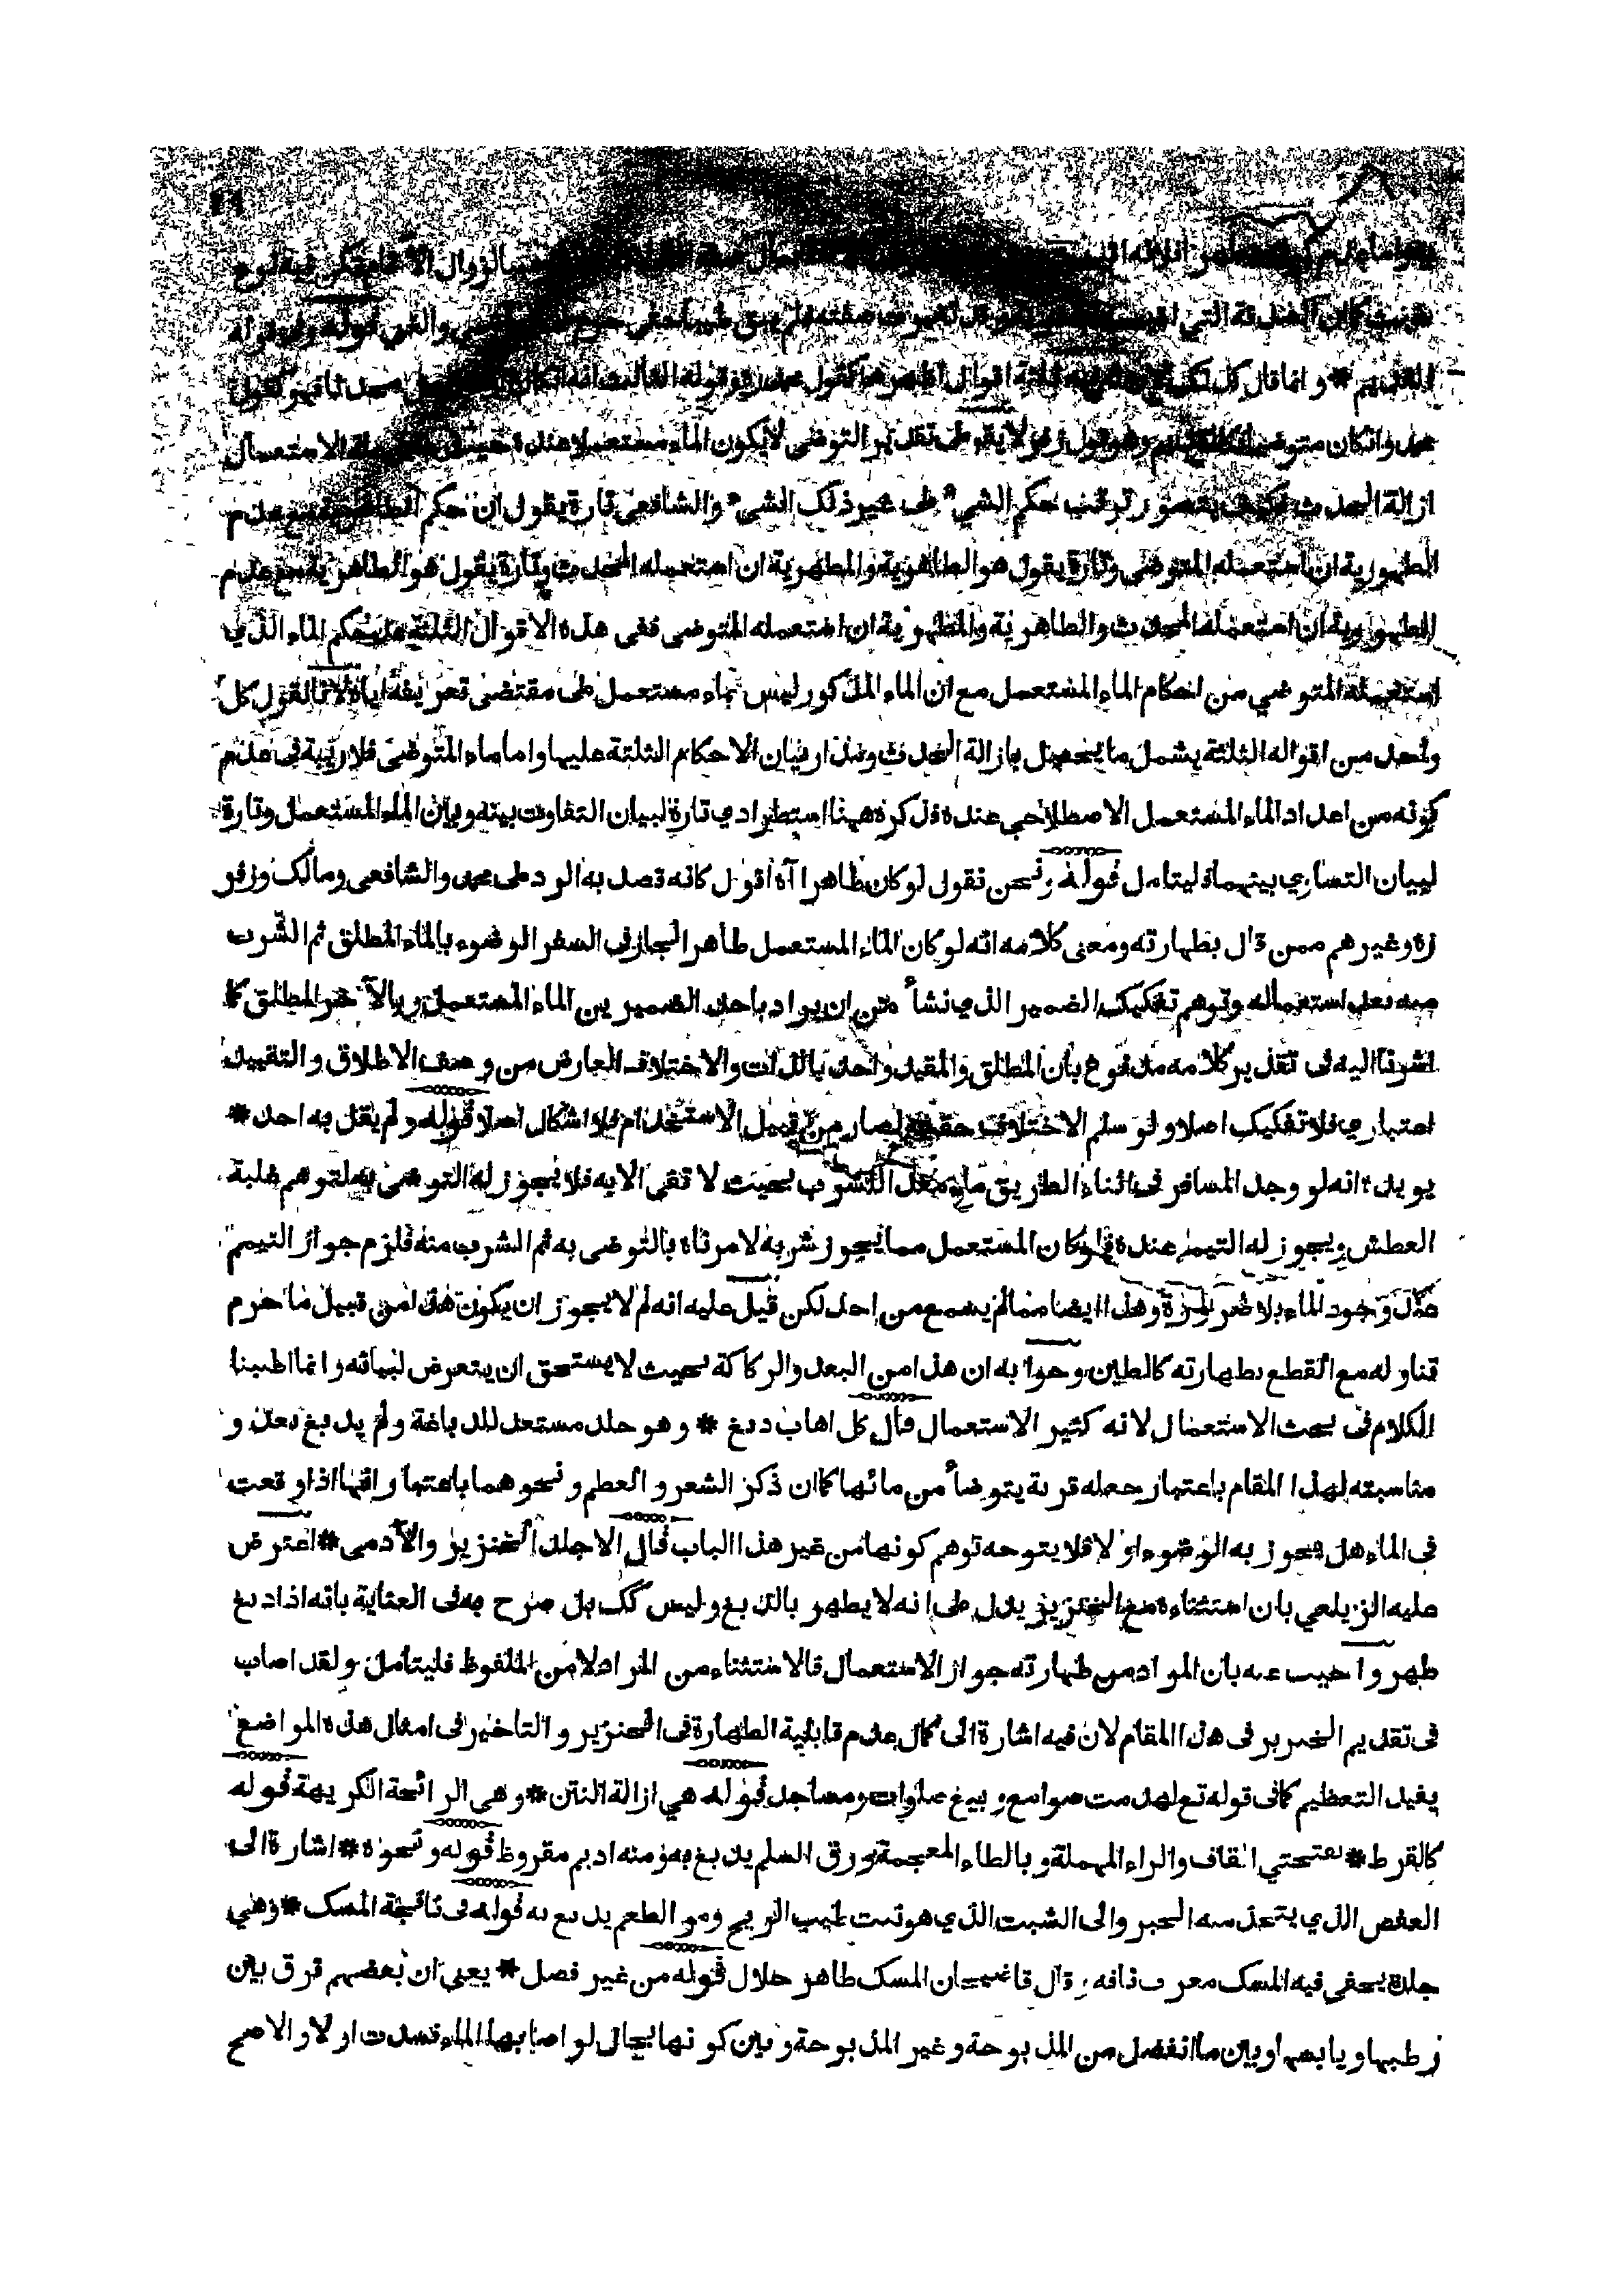 بالزوال الا
كانت التي تغيرت صفته فلم يبق قوله
القديم * وانما قال كل ثلثة اقوال اظهرها كقول محمد وقوله الثالث انه
محمد وان كان وهو قول زفر لا يقو على تقدير التوضى لا يكون الماء مستعملا عنده الاستعمال
ازالة الحدث فكيف يتصور ترتب حكم الشيء على غير ذلك الشيء والشافعي تارة يقول ان حكم الطاهرية مع عدم
الطهورية ان استعمله المتوضى وتارة يقول هو الطاهرية والمطهرية ان استعمله المحدث وتارة يقول هو الطاهرية مع عدم
الطهورية ان استعمله المحدث والطاهرية والمطهرية ان استعمله المتوضى ففى هذه الاقوال الثلثة حكم الماء الذي
استعمله المتوضي من احكام الماء المستعمل مع ان الماء المذكور ليس بماء مستعمل على مقتضى تعريفه اياه لانا نقول كل
واحد من اقواله الثلثة يشمل ما يحصل بازالة الحدث ومدار بيان الاحكام الثلثة عليها واما ماء المتوضى فلا ريبة فى عدم
كونه من اعداد الماء المستعمل الاصطلاحي عنده فذكره ههنا استطرادي تارة لبيان التفاوت بينه وبين الماء المستعمل وتارة
لبيان التساوي بينهما فليتامل قوله ونحن نقول لو كان طاهرا آه اقول كانه قصد به الرد على محمد والشافعى ومالك وزفر
زه وغيرهم ممن قال بطهارته ومعنى كلامه انه لو كان الماء المستعمل طاهرا لجاز فى السفر الوضوء بالماء المطلق ثم الشرب
منه بعد استعماله وتوهم تفكيك الضمير الذي نشأ من ان يراد باحد الضميرين الماء المستعمل وبالآخر المطلق كما
اشرنا اليه فى تقدير كلامه مدفوع بان المطلق والمقيد واحد بالذات والاختلاف العارض من وصف الاطلاق والتقييد
اعتباري فلا تفكيك اصلا ولو سلم الاختلاف حقيقة لصار من قبيل الاستخدام فلا اشكال اصلا قوله ولم يقل به احد *
يويده انه لو وجد المسافر فى اثناء الطريق ماء معد للشرب بحيث لا تقى الا به فلا يجوز له التوضى به لتوهم غلبة
العطش ويجوز له التيمم عنده فلو كان المستعمل مما يجوز شربه لامرناه بالتوضى به ثم الشرب منه فلزم جواز التيمم
حال وجود الماء بلا ضرورة وهذا ايضا مما لم يسمع من احد لكن قيل عليه انه لم لا يجوز ان يكون هذا من قبيل ما حرم
تناوله مع القطع بطهارته كالطين وجوابه ان هذا من البعد والركاكة بحيث لا يستحق ان يتعرض لبيانه وانما اطنبنا
الكلام فى بحث الاستعمال لانه كثير الاستعمال قال كل اهاب دبغ * وهو جلد مستعد للدباغة ولم يدبغ بعد و
مناسبته لهذا المقام باعتبار جعله قربة يتوضأ من مائها كما ان ذكر الشعر والعظم ونحوهما باعتبار انها اذا وقعت
فى الماء هل يجوز به الوضوء او لا فلا يتوجه توهم كونها من غير هذا الباب قال الا جلد الخنزير والآدمى * اعترض
عليه الزيلعي بان استثناءه مع الخنزير يدل على انه لا يطهر بالدبغ وليس كك بل صرح به فى العناية بانه اذا دبغ
طهر واجيب عنه بان المراد من طهارته جواز الاستعمال فالاستثناء من المراد لا من الملفوظ فليتامل ولقد اصاب
فى تقديم الخنزير فى هذا المقام لان فيه اشارة الى كمال عدم قابلية الطهارة فى الخنزير والتاخير فى امثال هذه المواضع
يفيد التعظيم كما فى قوله تع لهدمت صوامع وبيع صلوات ومساجد قوله هي ازالة النتن * وهى الرائحة الكريهة قوله
كالقرط * بفتحتي القاف والراء المهملة وبالظاء المعجمة ورق السلم يدبغ به ومنه اديم مقروظ قوله ونحوه * اشارة الى
العفص الذي يتخذ منه الحبر والى الشبت الذي هو نبت طيب الريح ومر الطعم يدبغ به قوله فى نافجة المسك * وهي
جلدة يخفى فيه المسك معرب نافه وقال قاضيخان المسك طاهر حلال قوله من غير فصل * يعنى ان بعضهم فرق بين
رطبها ويابسها وبين ما انفصل من المذبوحة وغير المذبوحة وبين كونها بحال لو اصابها الماء فسدت او لا والاصح